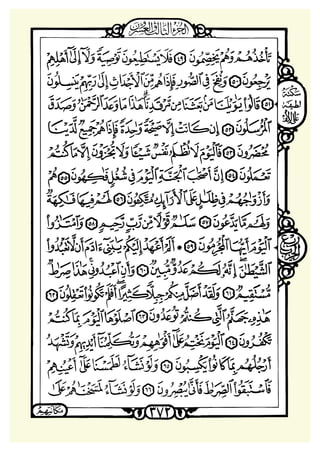 الجزء الثالث والعشرون
تَأْخُذُهُمْ وَهُمْ يَخِصِّمُونَ ٤٩ فَلَا يَسْتَطِيعُونَ تَوْصِيَةً وَلَآ إِلَىٰٓ أَهْلِهِمْ
يَرْجِعُونَ ٥٠ وَنُفِخَ فِى ٱلصُّورِ فَإِذَا هُم مِّنَ ٱلْأَجْدَاثِ إِلَىٰ رَبِّهِمْ يَنسِلُونَ
٥١ قَالُوا۟ يَٰوَيْلَنَا مَنۢ بَعَثَنَا مِن مَّرْقَدِنَا هَٰذَا مَا وَعَدَ ٱلرَّحْمَٰنُ وَصَدَقَ
ٱلْمُرْسَلُونَ ٥٢ إِن كَانَتْ إِلَّا صَيْحَةً وَٰحِدَةً فَإِذَا هُمْ جَمِيعٌ لَّدَيْنَا
مُحْضَرُونَ ٥٣ فَٱلْيَوْمَ لَا تُظْلَمُ نَفْسٌ شَيْـًٔا وَلَا تُجْزَوْنَ إِلَّا مَا كُنتُمْ
تَعْمَلُونَ ٥٤ إِنَّ أَصْحَٰبَ ٱلْجَنَّةِ ٱلْيَوْمَ فِى شُغُلٍ فَٰكِهُونَ ٥٥ هُمْ
وَأَزْوَٰجُهُمْ فِى ظِلَٰلٍ عَلَى ٱلْأَرَآئِكِ مُتَّكِـُٔونَ ٥٦ لَهُمْ فِيهَا فَٰكِهَةٌ
وَلَهُم مَّا يَدَّعُونَ ٥٧ سَلَٰمٌ قَوْلًا مِّن رَّبٍّ رَّحِيمٍ ٥٨ وَٱمْتَٰزُوا۟
ٱلْيَوْمَ أَيُّهَا ٱلْمُجْرِمُونَ ٥٩ أَلَمْ أَعْهَدْ إِلَيْكُمْ يَٰبَنِىٓ ءَادَمَ أَن لَّا تَعْبُدُوا۟
ٱلشَّيْطَٰنَ إِنَّهُۥ لَكُمْ عَدُوٌّ مُّبِينٌ ٦٠ وَأَنِ ٱعْبُدُونِى هَٰذَا صِرَٰطٌ
مُّسْتَقِيمٌ ٦١ وَلَقَدْ أَضَلَّ مِنكُمْ جِبِلًّا كَثِيرًا أَفَلَمْ تَكُونُوا۟ تَعْقِلُونَ ٦٢
هَٰذِهِۦ جَهَنَّمُ ٱلَّتِى كُنتُمْ تُوعَدُونَ ٦٣ ٱصْلَوْهَا ٱلْيَوْمَ بِمَا كُنتُمْ
تَكْفُرُونَ ٦٤ ٱلْيَوْمَ نَخْتِمُ عَلَىٰٓ أَفْوَٰهِهِمْ وَتُكَلِّمُنَآ أَيْدِيهِمْ وَتَشْهَدُ
أَرْجُلُهُم بِمَا كَانُوا۟ يَكْسِبُونَ ٦٥ وَلَوْ نَشَآءُ لَطَمَسْنَا عَلَىٰٓ أَعْيُنِهِمْ
فَٱسْتَبَقُوا۟ ٱلصِّرَٰطَ فَأَنَّىٰ يُبْصِرُونَ ٦٦ وَلَوْ نَشَآءُ لَمَسَخْنَٰهُمْ عَلَىٰ
٣٧٣
مكانتهم